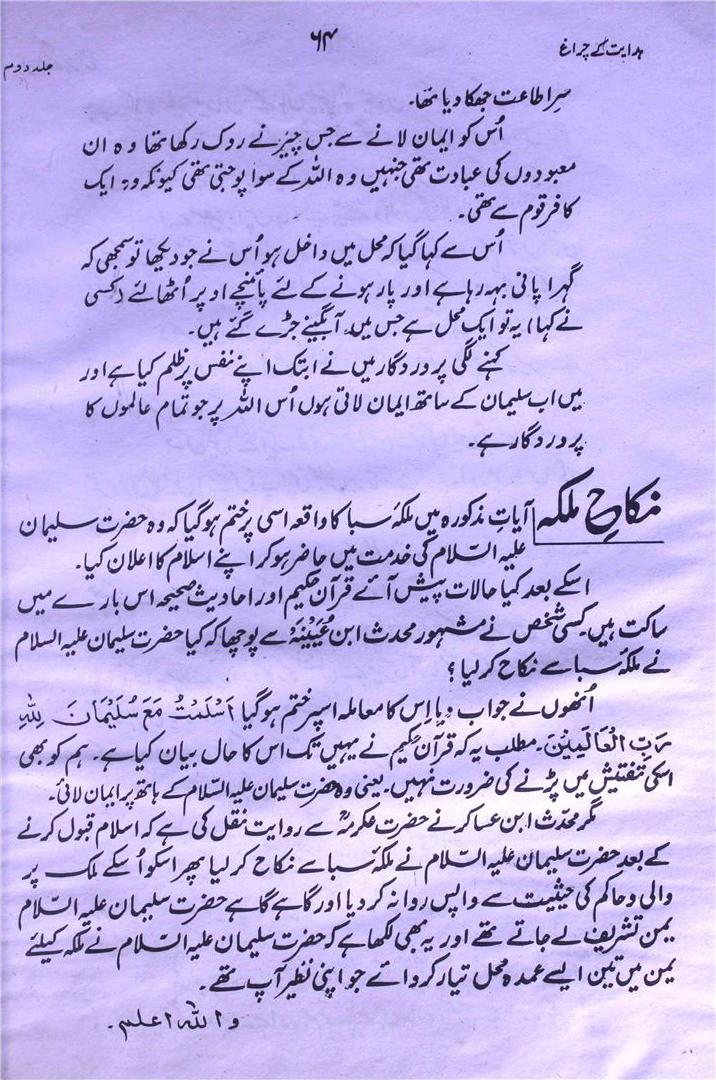 ہدایت کے چراغ
۶۴
جلد دوم
سراطاعت جھکا دیا تھا۔
اُس کو ایمان لانے سے جس چیز نے روک رکھا تھا وہ ان
معبودوں کی عبادت تھی جنہیں وہ اللہ کے سوا پوجتی تھی کیونکہ وہ ایک
کافر قوم سے تھی۔
اُس سے کہا گیا کہ محل میں داخل ہو اُس نے جو دیکھا تو سمجھی کہ
گہرا پانی بہہ رہا ہے اور پار ہونے کے لئے پائنچے اوپر اُٹھالئے (کسی
نے کہا) یہ تو ایک محل ہے جس میں آبگینے جڑے گئے ہیں۔
کہنے لگی پروردگار میں نے ابتک اپنے نفس پر ظلم کیا ہے اور
میں اب سلیمان کے ساتھ ایمان لاتی ہوں اُس اللہ پر جو تمام عالموں کا
پروردگار ہے۔
نکاحِ ملکہ
آیاتِ مذکورہ میں ملکۂ سبا کا واقعہ اسی پر ختم ہوگیا کہ وہ حضرت سلیمان
علیہ السّلام کی خدمت میں حاضر ہوکر اپنے اسلام کا اعلان کیا۔
اسکے بعد کیا حالات پیش آئے قرآن حکیم اور احادیث صحیحہ اس بارے میں
ساکت ہیں۔ کسی شخص نے مشہور محدث ابن عُیَیْنَہؒ سے پوچھا کہ کیا حضرت سلیمان علیہ السلام
نے ملکۂ سبا سے نکاح کر لیا؟
اُنھوں نے جواب دیا اِس کا معاملہ اسپر ختم ہوگیا اَسْلَمْتُ مَعَ سُلَیْمَانَ لِلّٰہِ
رَبِّ الْعَالَمِیْنَ۔ مطلب یہ کہ قرآن حکیم نے یہیں تک اس کا حال بیان کیا ہے۔ ہم کو بھی
اسکی تفتیش میں پڑنے کی ضرورت نہیں۔ یعنی وہ حضرت سلیمان علیہ السّلام کے ہاتھ پر ایمان لائی۔
مگر محدّث ابن عساکر نے حضرت عکرمہؒ سے روایت نقل کی ہے کہ اسلام قبول کرنے
کے بعد حضرت سلیمان علیہ السّلام نے ملکۂ سبا سے نکاح کر لیا پھر اسکو اُسکے ملک پر
والی وحاکم کی حیثیت سے واپس روانہ کر دیا اور گاہے گاہے حضرت سلیمان علیہ السّلام
یمن تشریف لے جاتے تھے اور یہ بھی لکھا ہے کہ حضرت سلیمان علیہ السّلام نے ملکہ کیلئے
یمن میں تین ایسے عمدہ محل تیار کروائے جو اپنی نظیر آپ تھے۔
واللہ اعلم۔